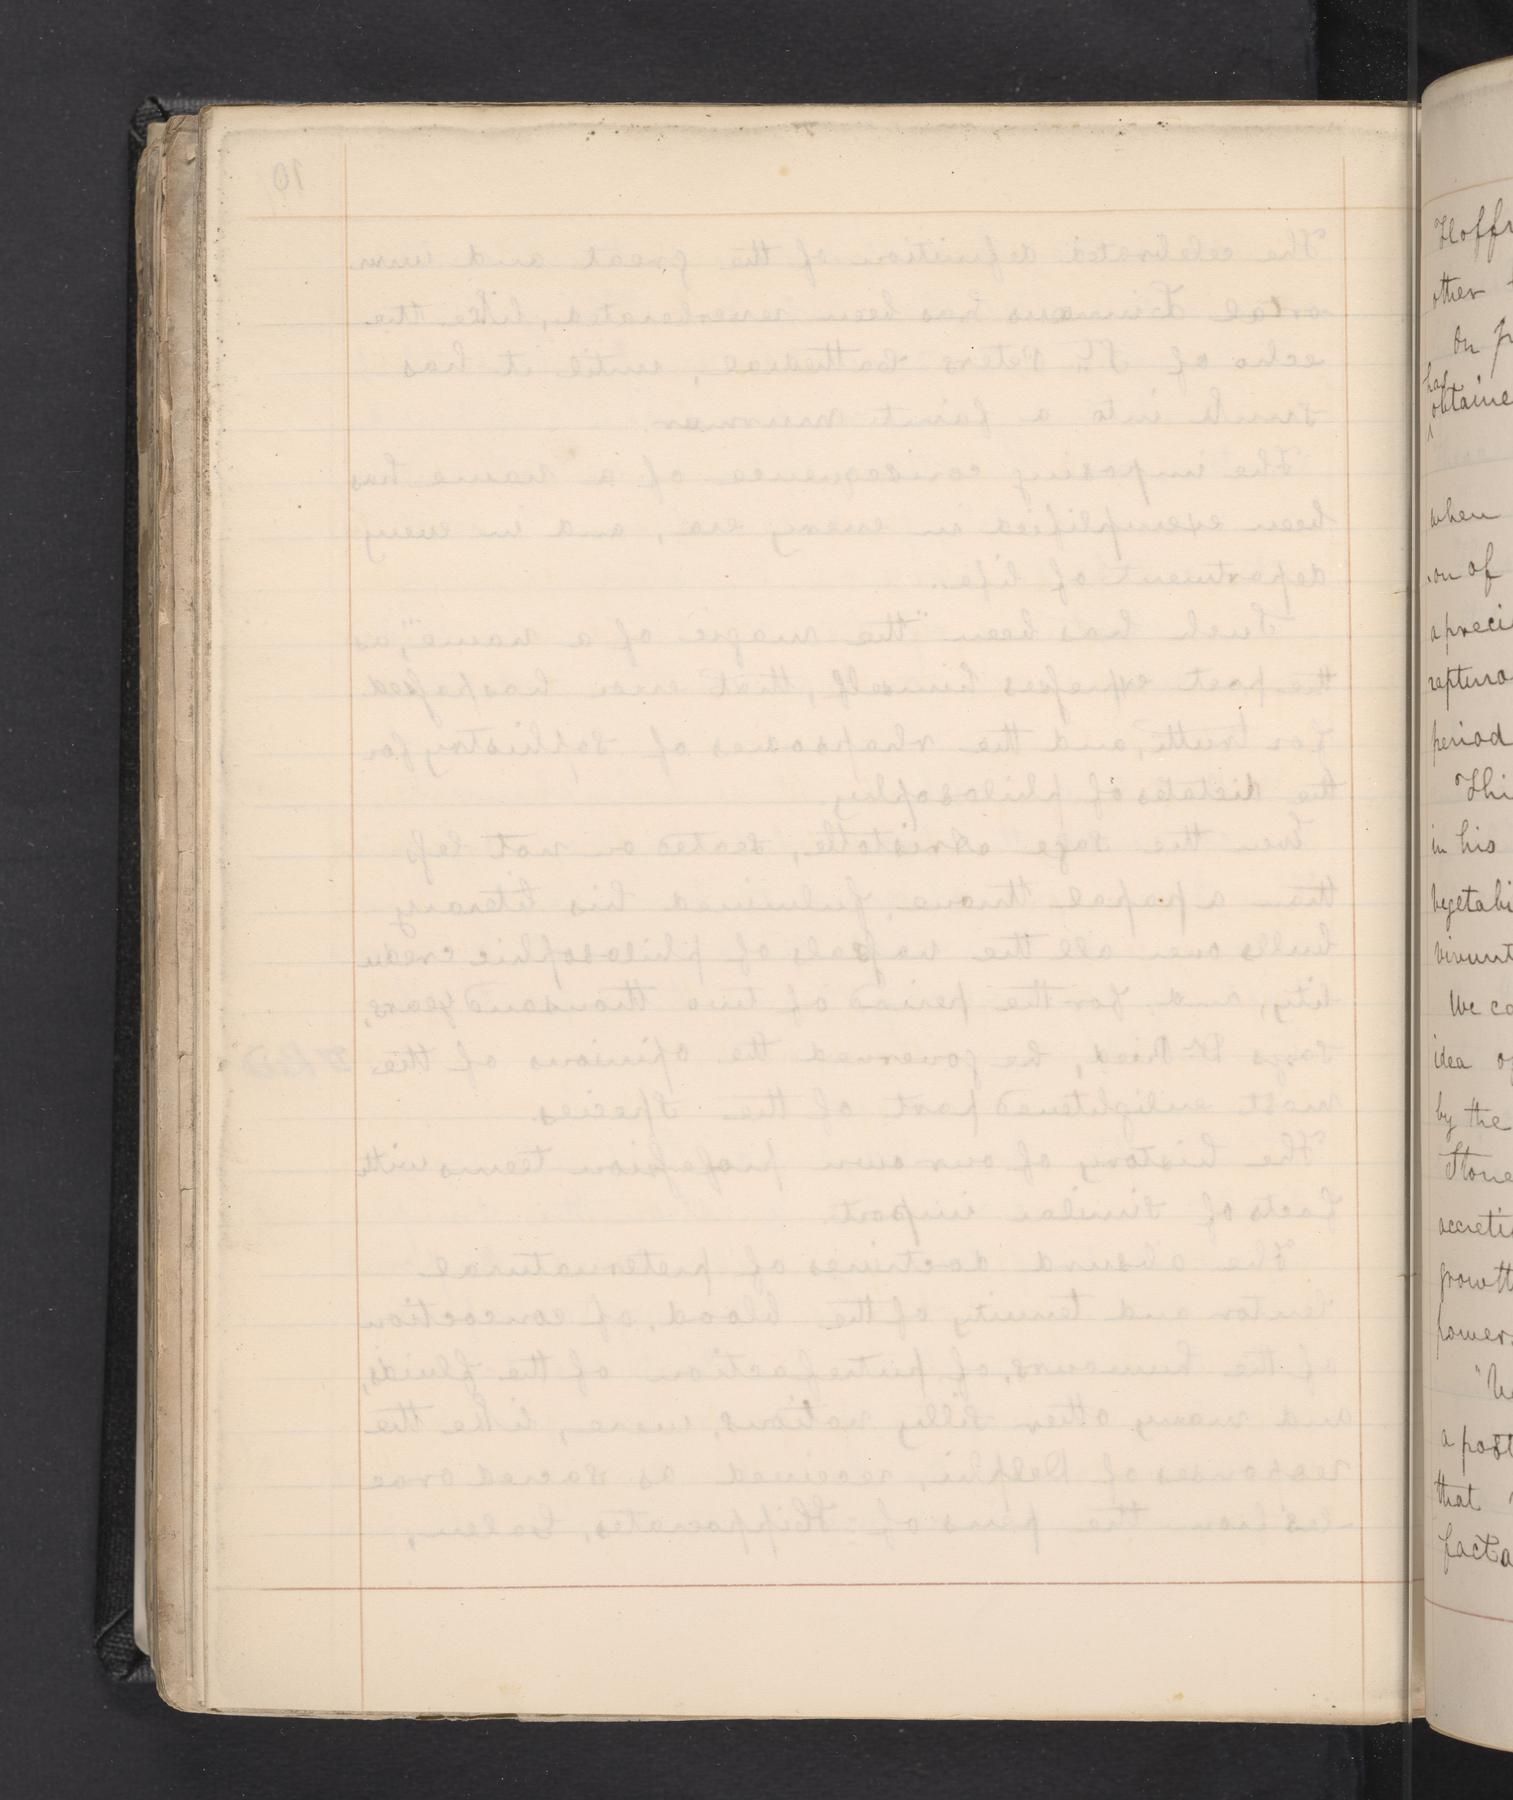 10
The celebrated definition of the great and imm
ortal Linnæus has been reverberated, like the
echo of St. Peters Cathedral, until it has
sunk into a faint murmur.
The imposing consequence of a name has
been exemplified in every era, and in every
department of life.
Such has been "the magic of a name", as
the poet expresses himself, that error has passed
for truth, and the rhapsodies of sophistry for
the dictates of philosophy.
the sage Aristotle, seated on not less
than a papal throne, fulmined his literary
bulls over all the vassals of philosophic credu
lity, and, for the period of two thousand years,
says Dr. Reid, he governed the opinions of the
Dr. Reid
most enlightened part of the species.
The history of our own profession teems with
facts of similar import.
The absurd doctrines of preternatural
lentor and tenuity of the blood, of concoction
of the humours, of putrefaction of the fluids,
and many other silly notions, were, like the
responses of Delphi, received as sacred orac
les from the pens of Hippocrates, Galen,
Hoff
other
On
has
obtaine
when
on of
a preci
period
Thi
in his
vegetabl
vivunt
We co
idea of
by the
Stone
accreti
growth
power
a post
that
facta